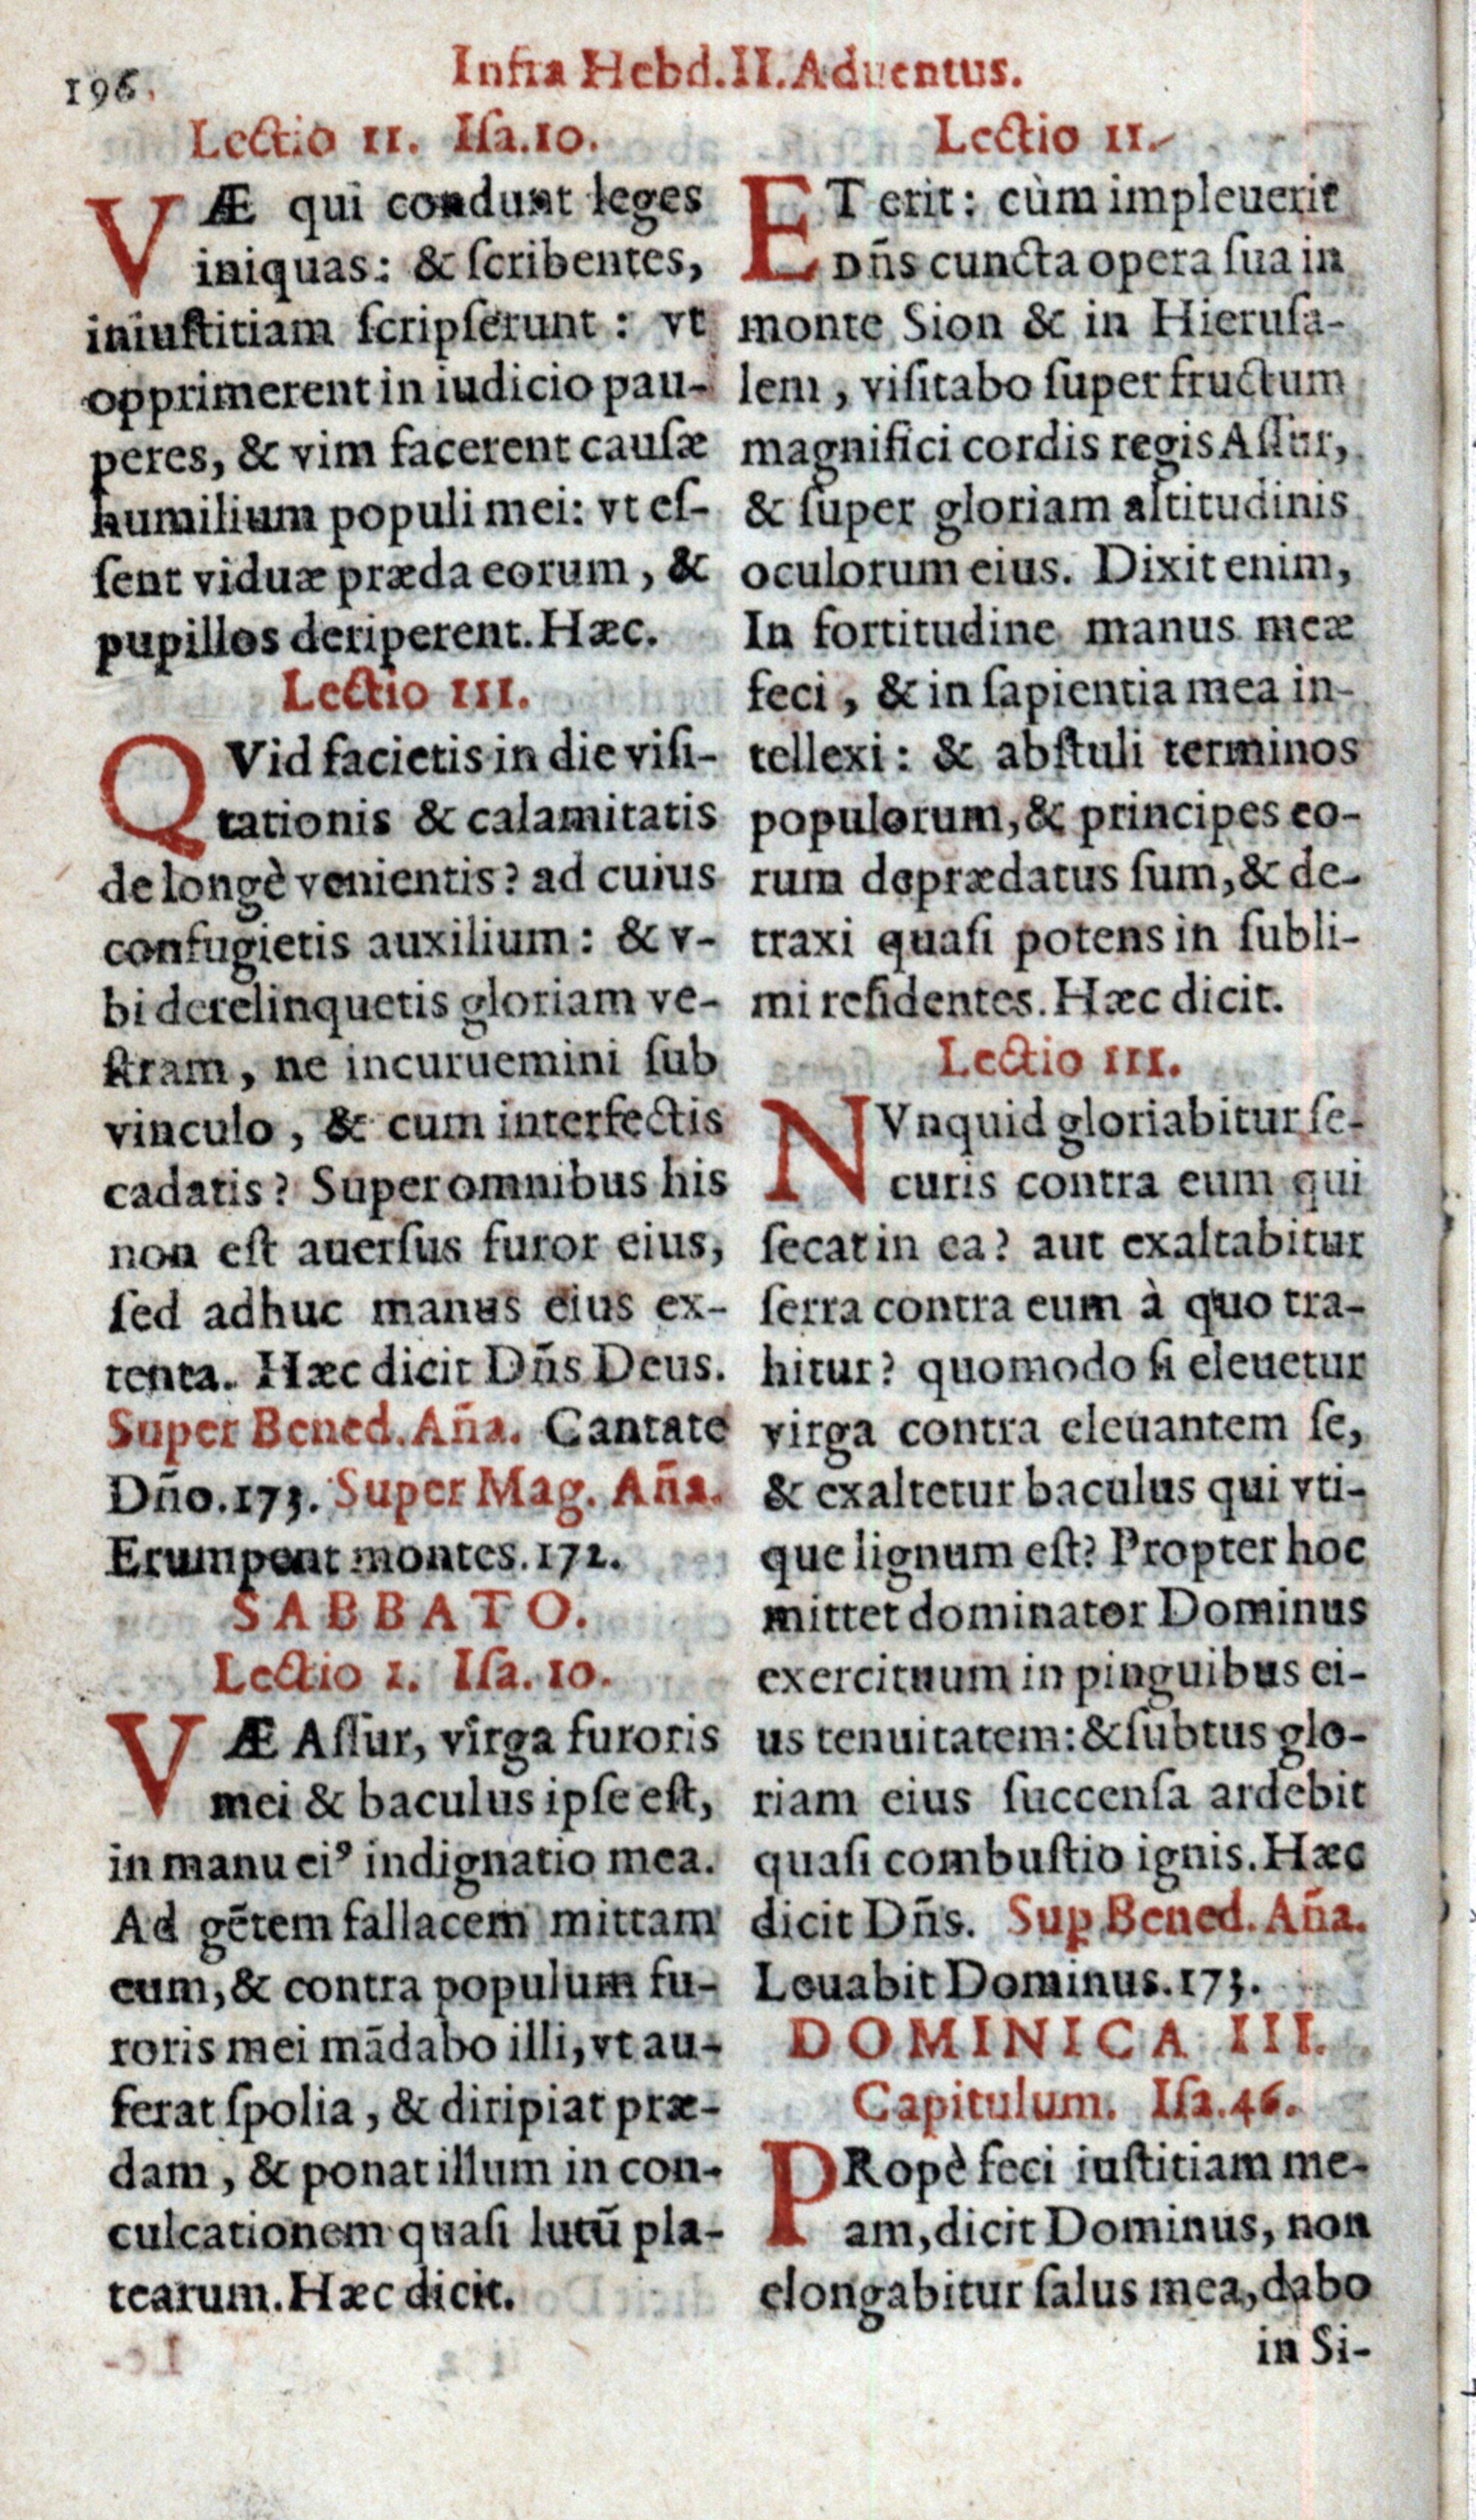 196.
Infra Hebd.II.Aduentus.
Lectio II. Iſa.10.
VÆ qui condunt leges
iniquas: & ſcribentes,
iniuſtitiam ſcripſerunt: vt
opprimerent in iudicio pau-
peres, & vim facerent cauſæ
humilium populi mei: vt eſ-
ſent viduæ præda eorum, &
pupillos deriperent. Hæc.
Lectio III.
QVid facietis in die viſi-
tationis & calamitatis
de longè venientis? ad cuius
confugietis auxilium: & v-
bi derelinquetis gloriam ve-
ſtram, ne incuruemini ſub
vinculo, & cum interfectis
cadatis? Super omnibus his
non eſt auerſus furor eius,
ſed adhuc manus eius ex-
tenta. Hæc dicit Dñs Deus.
Super Bened. Aña. Cantate
Dño.173. Super Mag. Aña.
Erumpent montes.172.
SABBATO.
Lectio I. Iſa.10.
VÆ Aſſur, virga furoris
mei & baculus ipſe eſt,
in manu eiꝰ indignatio mea.
Ad gētem fallacem mittam
eum, & contra populum fu-
roris mei mādabo illi, vt au-
ferat ſpolia, & diripiat præ-
dam, & ponat illum in con-
culcationem quaſi lutū pla-
tearum. Hæc dicit.
Lectio II.
ET erit: cùm impleuerit
Dñs cuncta opera ſua in
monte Sion & in Hieruſa-
lem, viſitabo ſuper fructum
magnifici cordis regis Aſſur,
& ſuper gloriam altitudinis
oculorum eius. Dixit enim,
In fortitudine manus meæ
feci, & in ſapientia mea in-
tellexi: & abſtuli terminos
populorum, & principes eo-
rum deprædatus ſum, & de-
traxi quaſi potens in ſubli-
mi reſidentes. Hæc dicit.
Lectio III.
NVnquid gloriabitur ſe-
curis contra eum qui
ſecat in ea? aut exaltabitur
ſerra contra eum à quo tra-
hitur? quomodo ſi eleuetur
virga contra eleuantem ſe,
& exaltetur baculus qui vti-
que lignum eſt? Propter hoc
mittet dominator Dominus
exercituum in pinguibus ei-
us tenuitatem: & ſubtus glo-
riam eius ſuccenſa ardebit
quaſi combuſtio ignis. Hæc
dicit Dñs. Suꝑ Bened. Aña.
Leuabit Dominus.173.
DOMINICA III.
Capitulum. Iſa.46.
PRopè feci iuſtitiam me-
am, dicit Dominus, non
elongabitur ſalus mea, dabo
in Si-